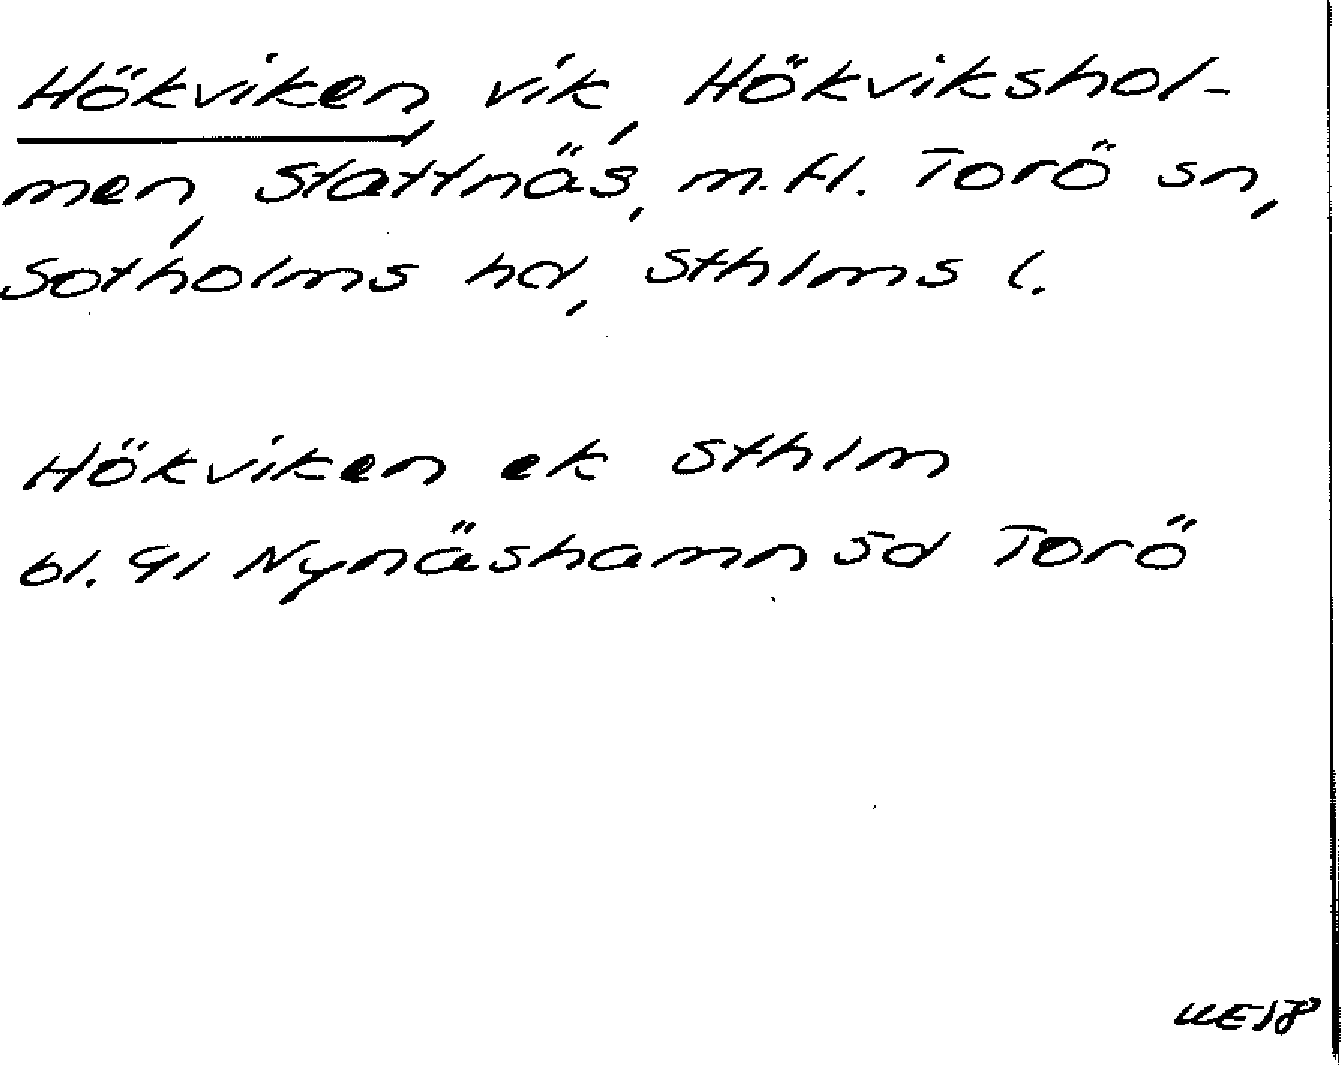 Hökviken, vik, Hökvikshol-
men, Stattnäs, m.fl. Torö sn,
Sotholms hd, Sthlms l.
Hökviken ek Sthlm
bl. 91 Nynäshamn SO Torö